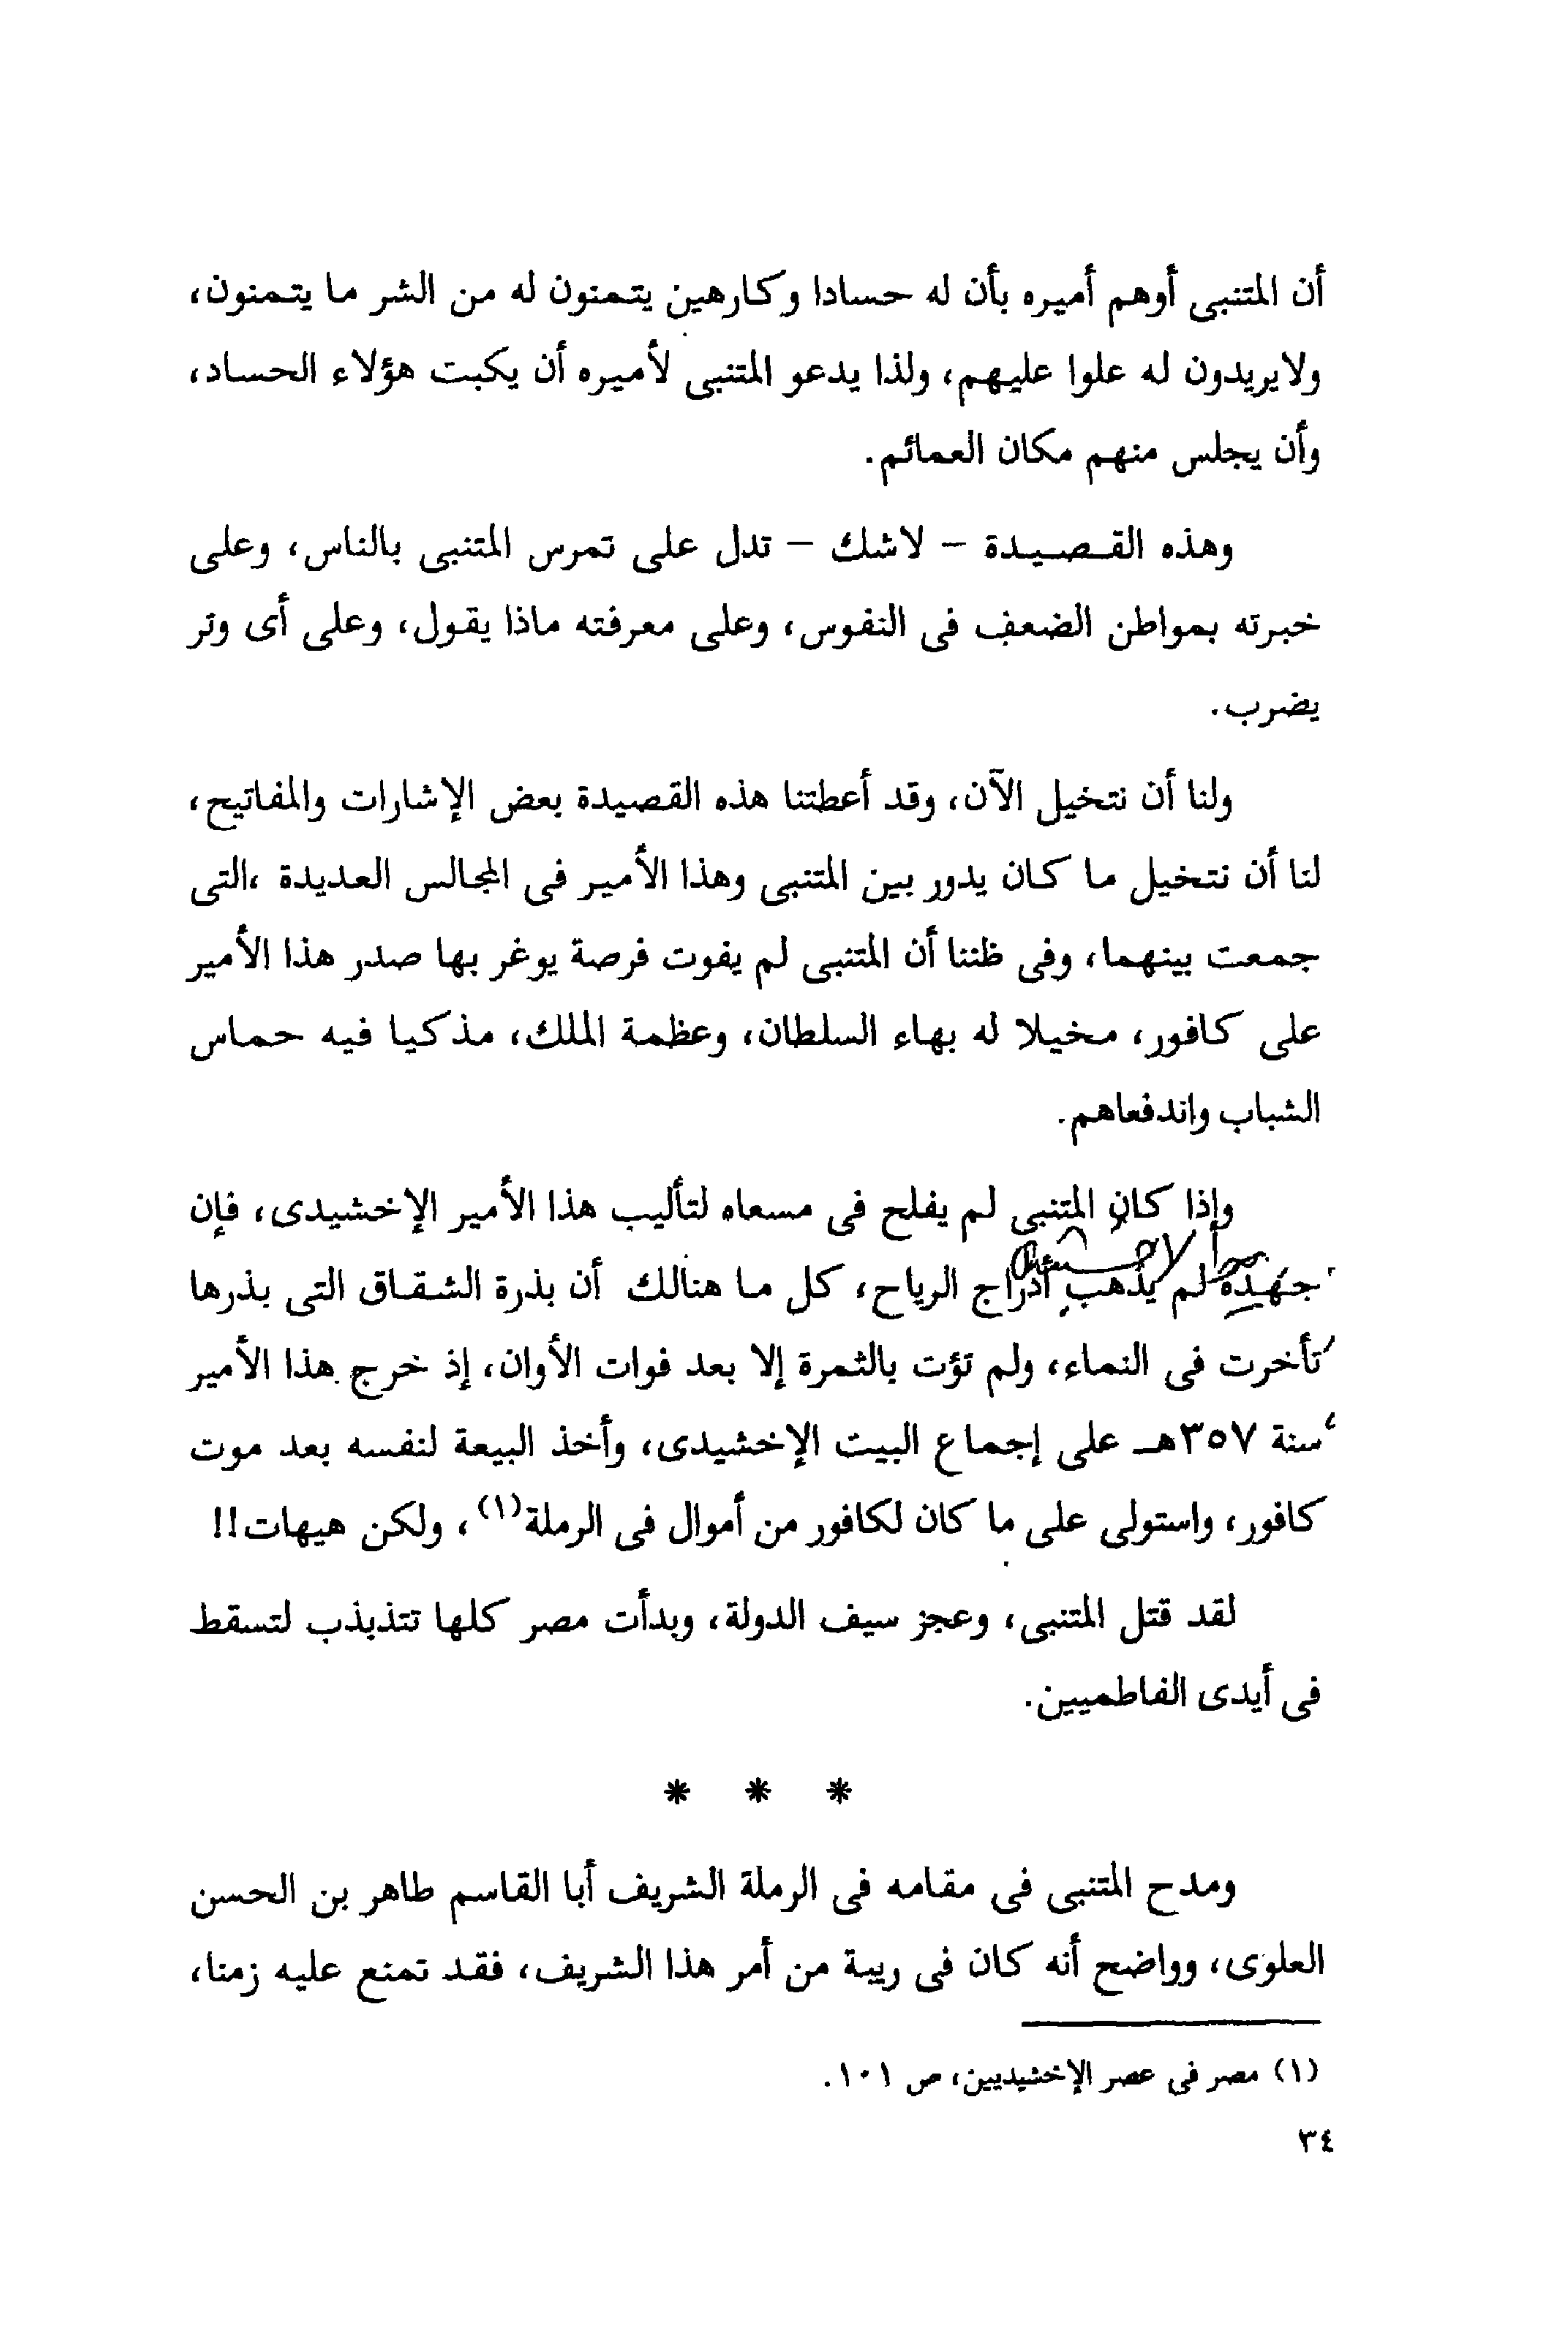 أن المتنبى أوهم أميره بأن له حسادا وكارهين يتمنون له من الشر ما يتمنون،
ولايريدون له علوا عليهم، ولذا يدعو المتنبى لأميره أن يكبت هؤلاء الحساد،
وأن يجلس منهم مكان العمائم.
وهذه القصيدة – لاشك – تدل على تمرس المتنبى بالناس، وعلى
خبرته بمواطن الضعف فى النفوس، وعلى معرفته ماذا يقول، وعلى أى وتر
يضرب.
ولنا أن نتخيل الآن، وقد أعطتنا هذه القصيدة بعض الإشارات والمفاتيح،
لنا أن نتخيل ما كان يدور بين المتنبى وهذا الأمير فى المجالس العديدة ،التى
جمعت بينهما، وفى ظننا أن المتنبى لم يفوت فرصة يوغر بها صدر هذا الأمير
على كافور، مخيلا له بهاء السلطان، وعظمة الملك، مذكيا فيه حماس
الشباب واندفعاهم.
وإذا كان المتنبى لم يفلح فى مسعاه لتأليب هذا الأمير الإخشيدى، فإن
جهيدة لم يذهب أدراج الرياح، كل ما هنالك أن بذرة الشقاق التى بذرها
تأخرت فى النماء، ولم تؤت بالثمرة إلا بعد فوات الأوان، إذ خرج هذا الأمير
سنة ٣٥٧هـ على إجماع البيت الإخشيدى، وأخذ البيعة لنفسه بعد موت
كافور، واستولى على ما كان لكافور من أموال فى الرملة(١)، ولكن هيهات!!
لقد قتل المتنبى، وعجز سيف الدولة، وبدأت مصر كلها تتذبذب لتسقط
فى أيدى الفاطميين.
* * *
ومدح المتنبى فى مقامه فى الرملة الشريف أبا القاسم طاهر بن الحسن
العلوى، وواضح أنه كان فى ريبة من أمر هذا الشريف، فقد تمنع عليه زمنا،
(١) مصر فى عصر الإخشيديين، ص ١٠١.
٣٤